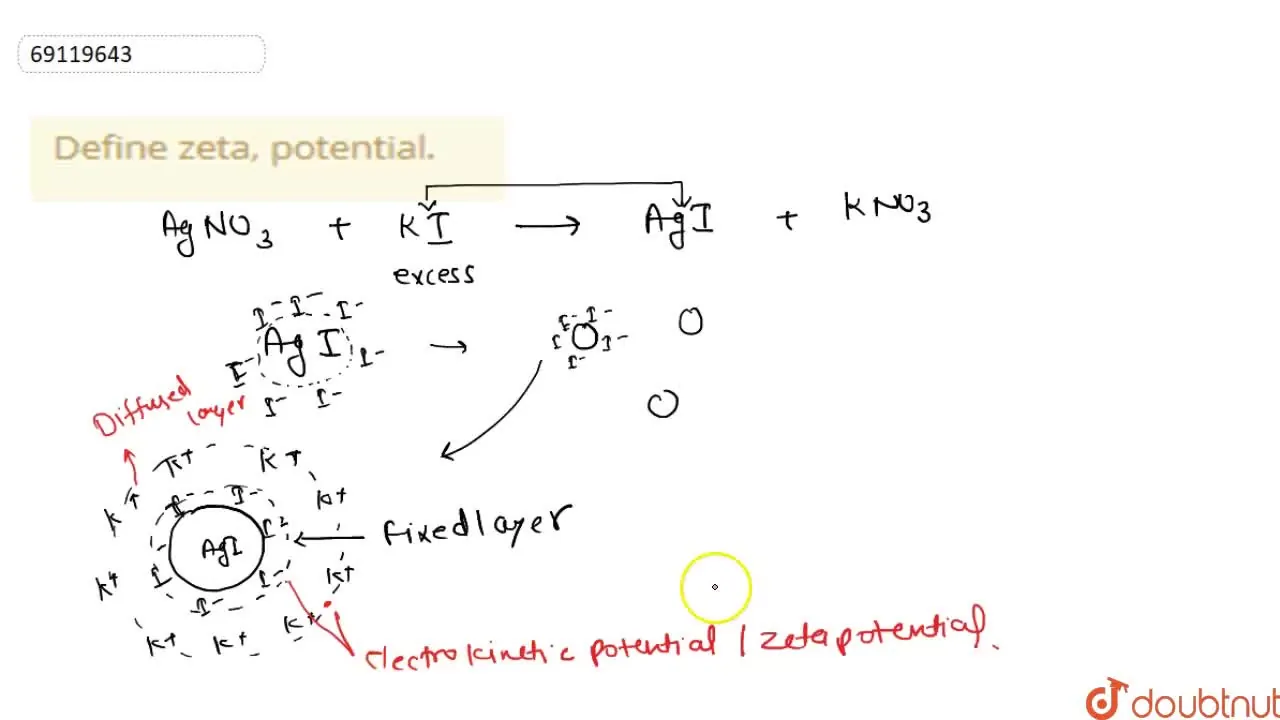 69119643
Define zeta, potential.
AgNO3 + KI → AgI + KNO3
excess
I- I- I-
AgI → I- I-
I- I- I I-
I- I- I-
Diffused
layer
K+ K+
K+ I- I- K+
AgI I- ← fixed layer
K+ I I- K+
I- K+
K+ K+
electrokinetic potential / zeta potential.
doubtnut